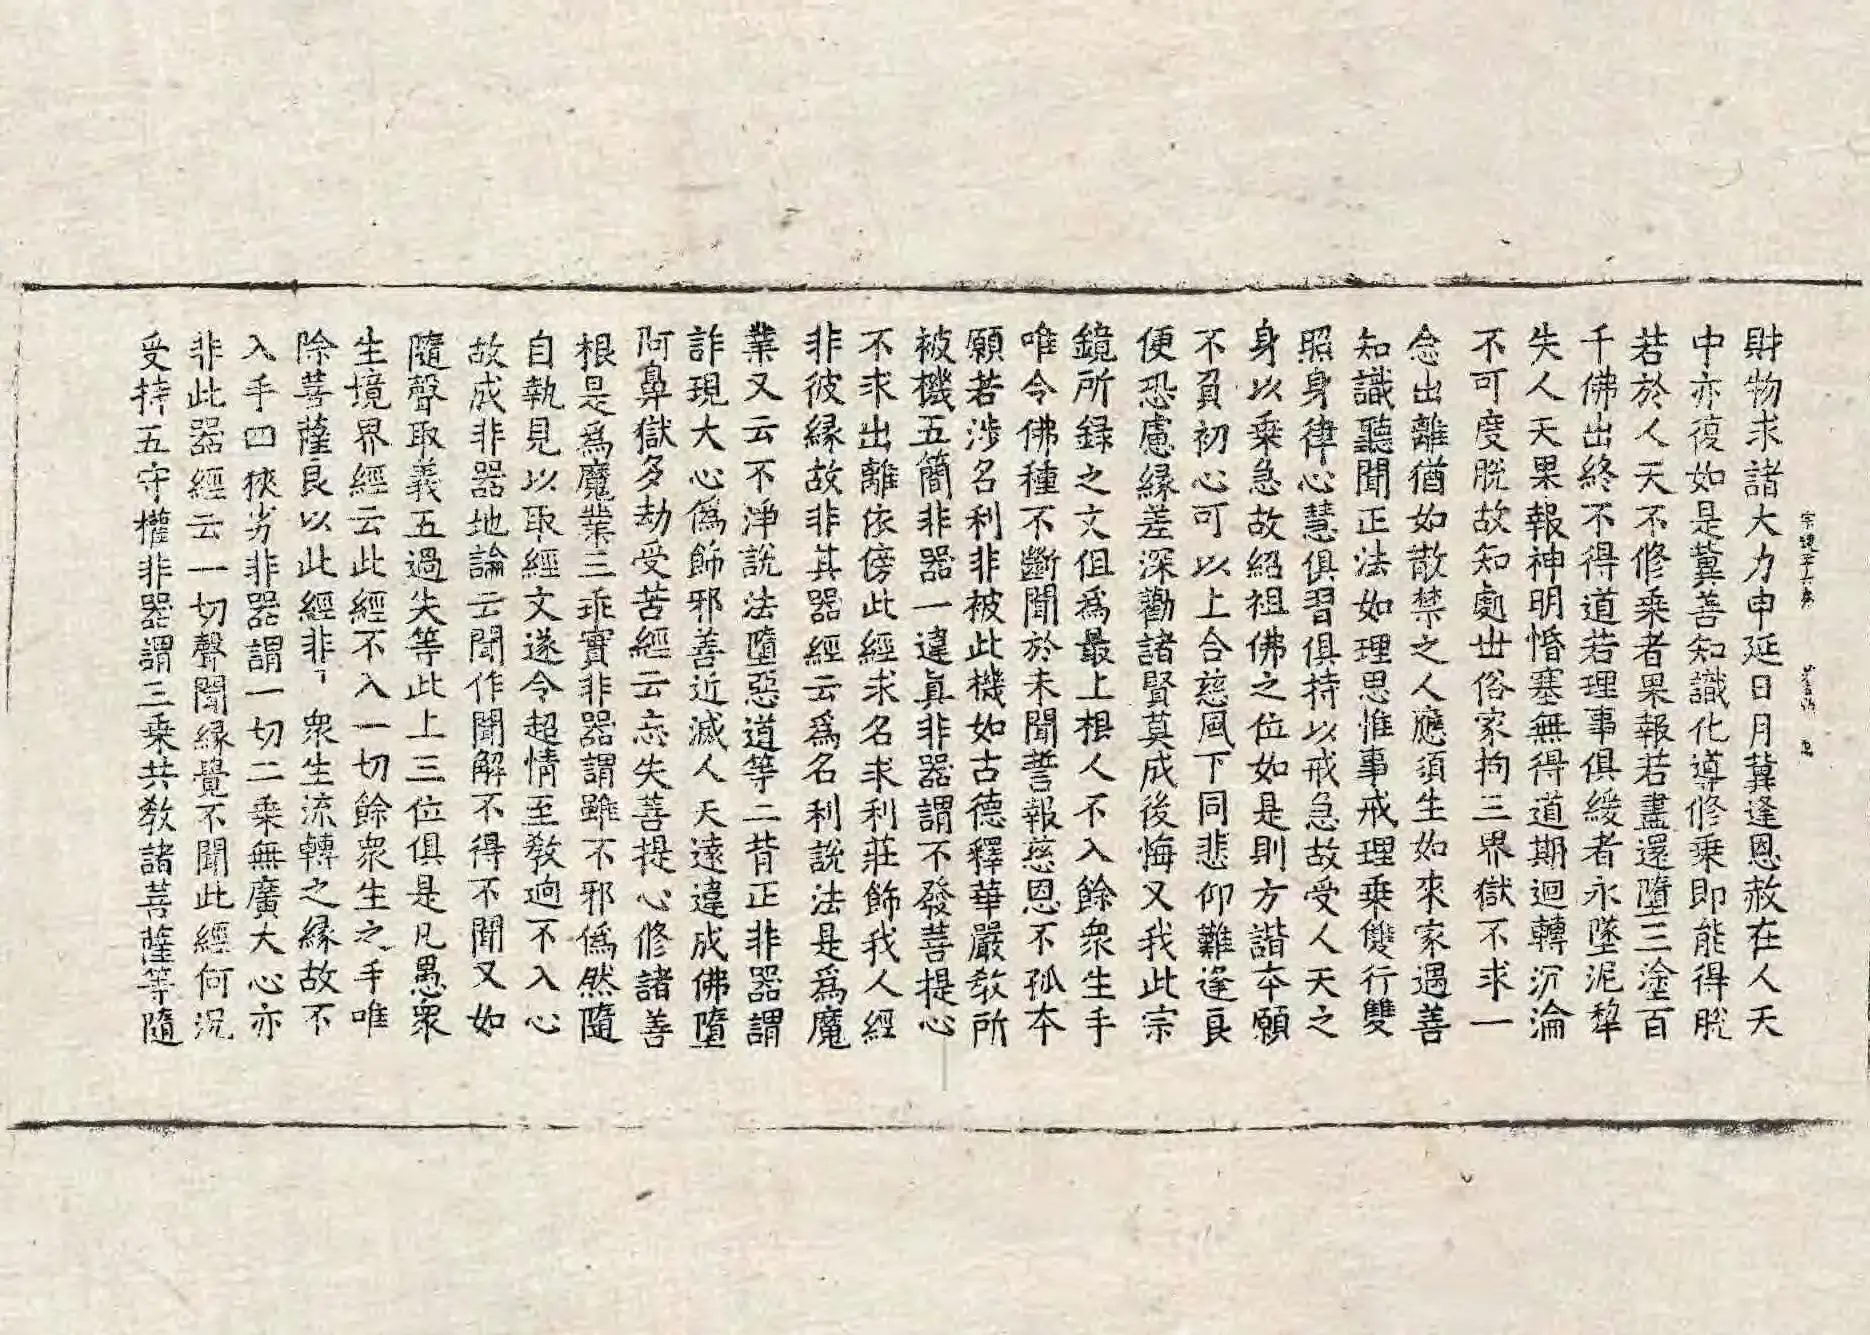 財物求諸大力申延日月冀逢恩赦在人天
中亦復如是冀善知識化導修乗即能得脱
若於人天不修乗者果報若盡還墮三塗百
千佛出終不得道若理事俱緩者永墜泥犂
失人天果報神明惛塞無得道期迴轉沉淪
不可度脱故知處世俗家拘三界獄不求一
念出離猶如散禁之人應須生如來家遇善
知識聽聞正法如理思惟事戒理乗雙行雙
照身律心慧俱習俱持以戒急故受人天之
身以乗急故紹祖佛之位如是則方諧本願
不負初心可以上合慈風下同悲仰難逢良
便恐慮縁差深勸諸賢莫成後悔又我此宗
鏡所録之文但為最上根人不入餘衆生手
唯令佛種不斷聞於未聞誓報慈恩不孤本
願若涉名利非被此機如古德釋華嚴教所
被機五簡非器一違真非器謂不發菩提心
不求出離依傍此經求名求利莊飾我人經
非彼縁故非其器經云為名利說法是為魔
業又云不淨說法墮惡道等二背正非器謂
詐現大心偽飾邪善近滅人天遠違成佛墮
阿鼻獄多劫受苦經云忘失菩提心修諸善
根是為魔業三乖實非器謂雖不邪偽然隨
自執見以取經文遂令超情至教逈不入心
故成非器地論云聞作聞解不得不聞又如
隨聲取義五過失等此上三位俱是凡愚衆
生境界經云此經不入一切餘衆生之手唯
除菩薩良以此經非衆生流轉之縁故不
入手四狹劣非器謂一切二乗無廣大心亦
非此器經云一切聲聞縁覺不聞此經何況
受持五守權非器謂三乗共教諸菩薩等隨